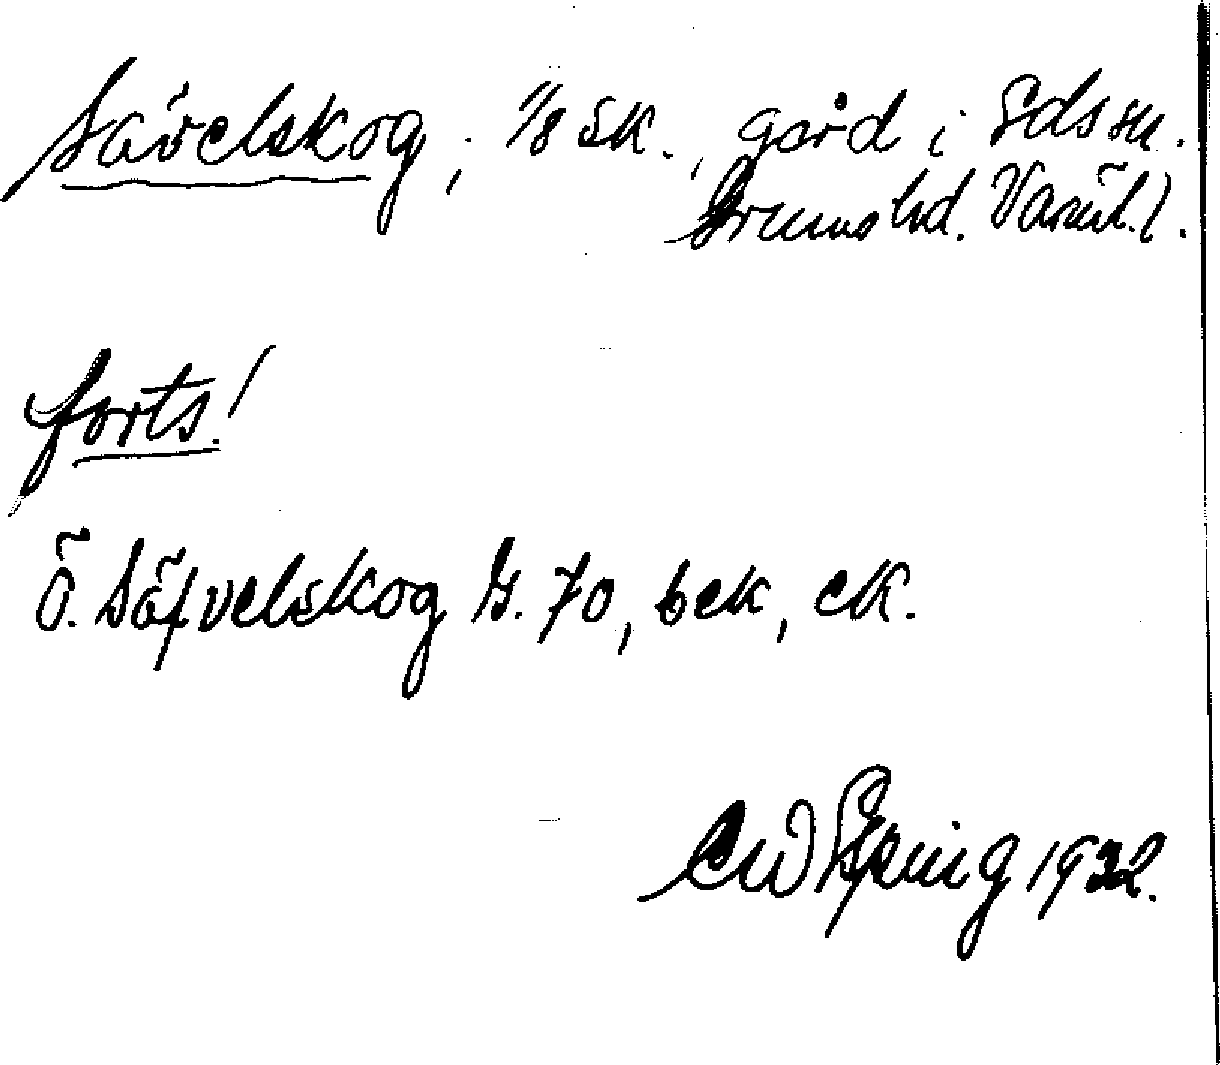 Sävelskog, 1/8 sk., gård i Eds sn.
Grums hd. Värml. l.
forts!
Ö. Säfvelskog G. 70, bek, ek.
1932.